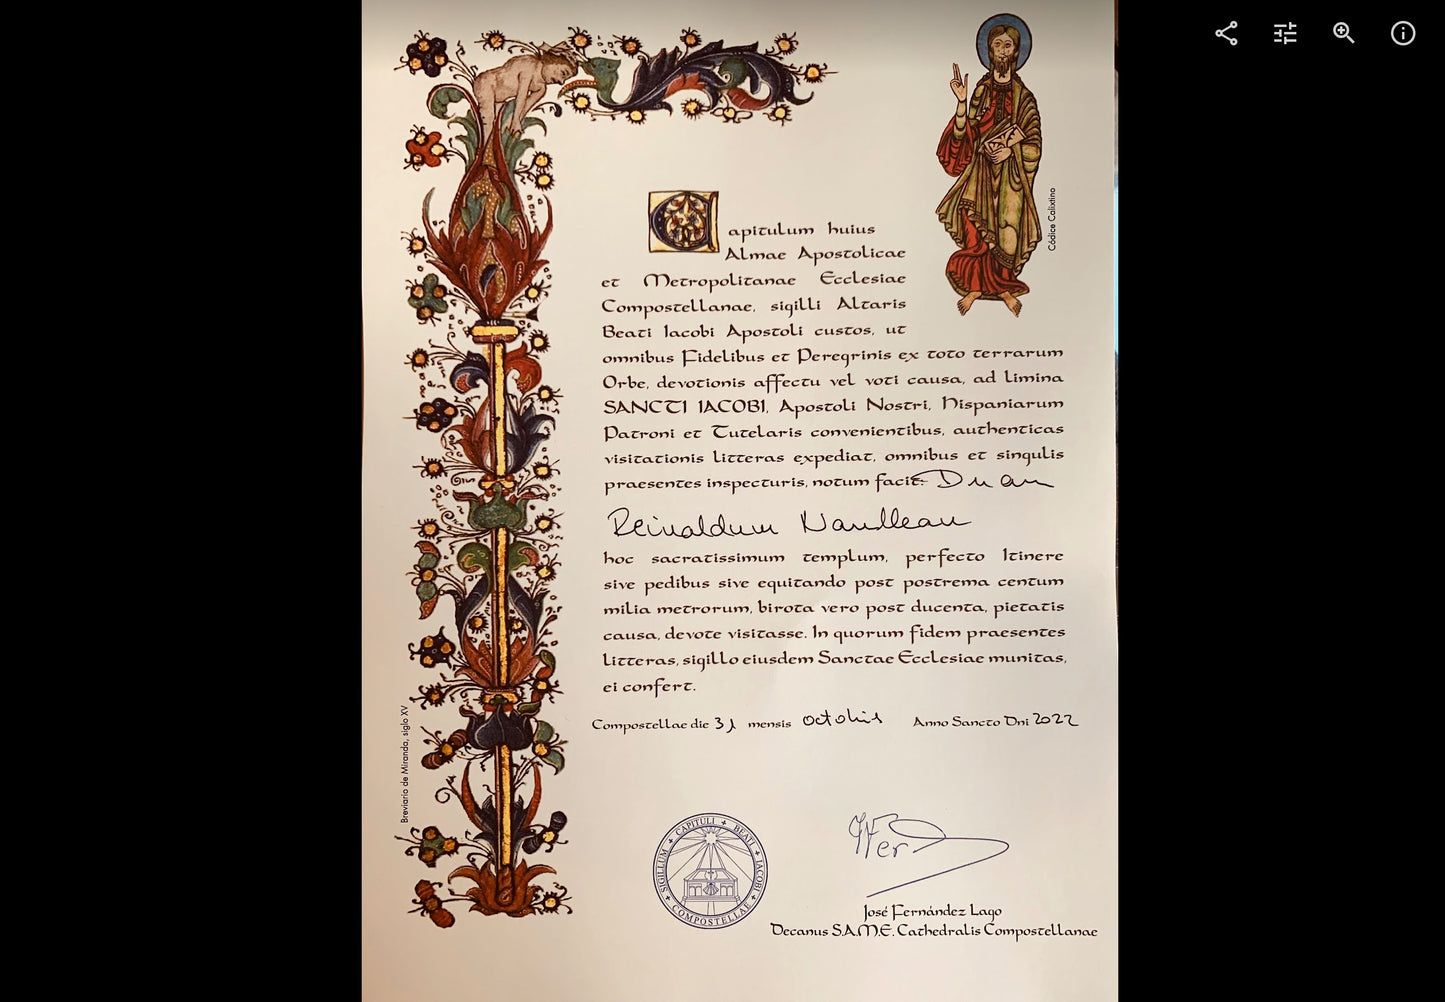 Capitulum huius
Almae Apostolicae
et Metropolitanae Ecclesiae
Compostellanae, sigilli Altaris
Beati Iacobi Apostoli custos, ut
omnibus Fidelibus et Peregrinis ex toto terrarum
Orbe, devotionis affectu vel voti causa, ad limina
SANCTI IACOBI, Apostoli Nostri, Hispaniarum
Patroni et Tutelaris convenientibus, authenticas
visitationis litteras expediat, omnibus et singulis
praesentes inspecturis, notum facit:
Reinaldum
hoc sacratissimum templum, perfecto Itinere
sive pedibus sive equitando post postrema centum
milia metrorum, birota vero post ducenta, pietatis
causa, devote visitasse. In quorum fidem praesentes
litteras, sigillo eiusdem Sanctae Ecclesiae munitas,
ei confert.
Compostellae die 31 mensis octobris Anno Sancto Dni 2022
SIGILLUM + CAPITULI + BEATI + IACOBI + COMPOSTELLAE +
José Fernández Lago
Decanus S.A.M.E. Cathedralis Compostellanae
Códice Calixtino
Breviario de Miranda, siglo XV